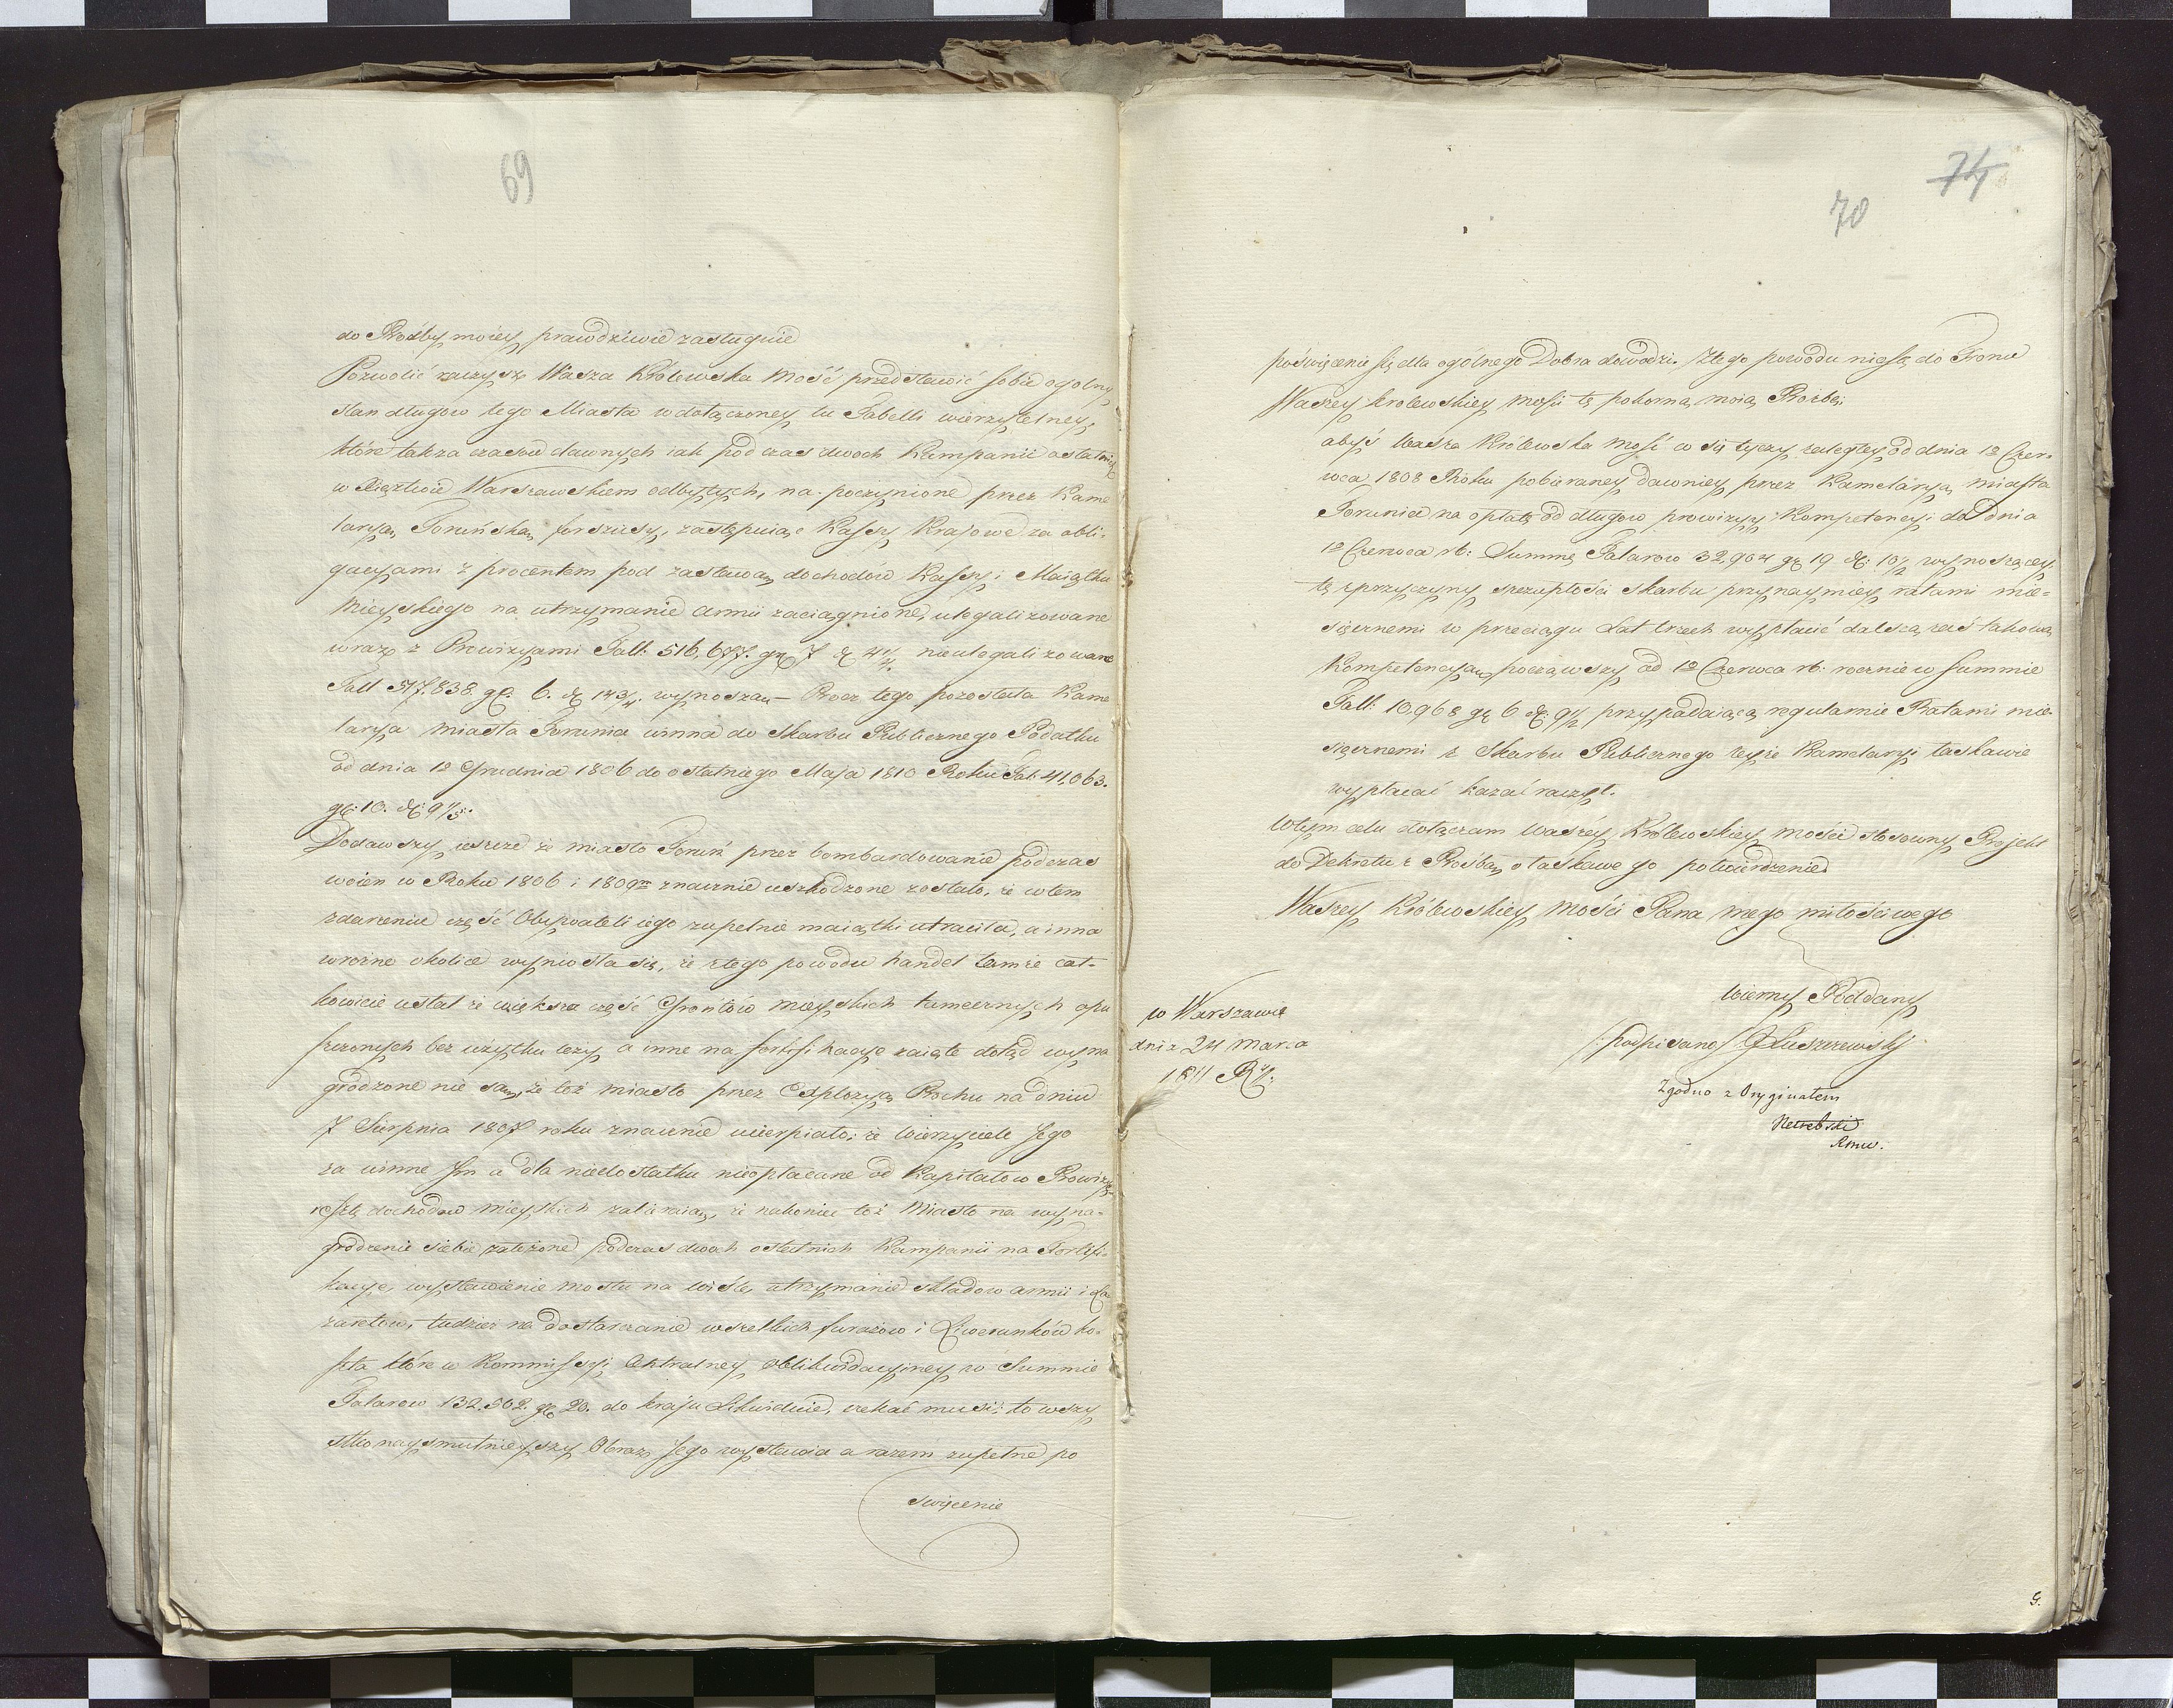 69
do Prośby moiey prawdziwie zasługuie
Pozwolić raczysz Wasza Królewska Mość przedstawić sobie ogólny
stan długow tego Miasta w dołączoney tu Tabelli wierzytelney,
które tak za czasow dawnych iak podczas dwoch Kampanii ostatnich
w Xięztwie Warszawskiem odbytych, na poczynione przez Kame
laryą Toruńską forszusy, zastępuiąc Kassy Krajowe za obli-
gacyami z procentem pod zastawą dochodów Kassy i Maiątku
Mieyskiego na utrzymanie armii zaciągnione, ulegalizowane
wraz z Prowizyami Tall: 516,677. gr 7 d 4 1/4. nieulegalizowane
Tall 517.838. gr. 6. d 14 3/4. wynoszą – Procz tego pozostała Kame
larya miasta Torunia winna do Skarbu Publicznego Podatku
od dnia 12 Grudnia 1806 do ostatniego Maja 1810 Roku Tal: 41,063.
gr: 10. d: 9 1/5.
Dodawszy ieszcze że miasto Toruń przez bombardowanie podczas
woien w Roku 1806 i 1809m znacznie uszkodzone zostało, że w tem
zdarzeniu część Obywateli iego zupełnie maiątki utraciła, a inna
wrożne okolice wyniosła się, że ztego powodu handel tamże cał-
kowicie ustał że większa część Grontów mieyskich tameczných opu
szczonych bez użytku leży a inne na fortifikacye zaięte dotąd wyna
grodzone nie są, że toż miasto przez Explozyą Prochu na dniu
7 Sierpnia 1807 roku znacznie ucierpiało; że Wierzyciele Jego
za winne Im a dla niedostatku nieopłacane od Kapitałow Prowizye
resztę dochodow mieyskich zabieraią, że nakoniec toż Miasto na wyna-
grodzenie siebie założone podczas dwoch ostatnich Kampanii na Fortifi-
kacye, wystawienie mostu na Wiśle, utrzymanie składow armii i La
zaretow, tudzież na dostarczanie wszelkich furażow i Liwerunków ko-
szta które w Kommissyi Centralney Oblikwidacyiney w Summie
Talarow 132.502. gr 20. do kraju Likwiduie, czekać musi; to wszy
stko naysmutnieyszy Obraz Jego wystawia a razem zupełne po
święcenie
74
70
poświęcenie się dla ogólnego Dobra dowodzi. Ztego powodu niosę do Tronu
Waszey Krolewskiey mości tę pokorną moią Prozbę;
abyś Wasza Królewska Mość co się tyczy zaległey od dnia 12 Czer-
wca 1808 Roku pobieraney dawniey przez Kamelaryą miasta
Torunia na opłatę od długow prowizyy Kompetencyi do dnia
12 Czerwca rb: Summę Talarow 32,904 gr 19 d: 10 1/2 wynoszącey
tę zprzyczyny szczupłości skarbu przynaymiey ratami mie-
sięcznemi w przeciągu Lat trzech wypłacić dalszą zaś takową
Kompetencyą począwszy od 12 Czerwca rb: rocznie w summie
Tall: 10,968 gr 6 d: 9 1/2 przypadaiącą regularnie Ratami mie-
sięcznemi z Skarbu Publicznego teyże Kamelaryi łaskawie
wypłacać kazać raczył.
Wtym celu dołączam Waszey Królewskiey Mości stosowny Projekt
do Dekretu z Prośbą o łaskawe go potwierdzenie
Waszey Królewskiey Mości Pana mego miłościwego
wierny Poddany
/:podpisano/ Łuszczewski
w Warszawie
dnia 24 Marca
1811 R:
Zgodno z Oryginałem